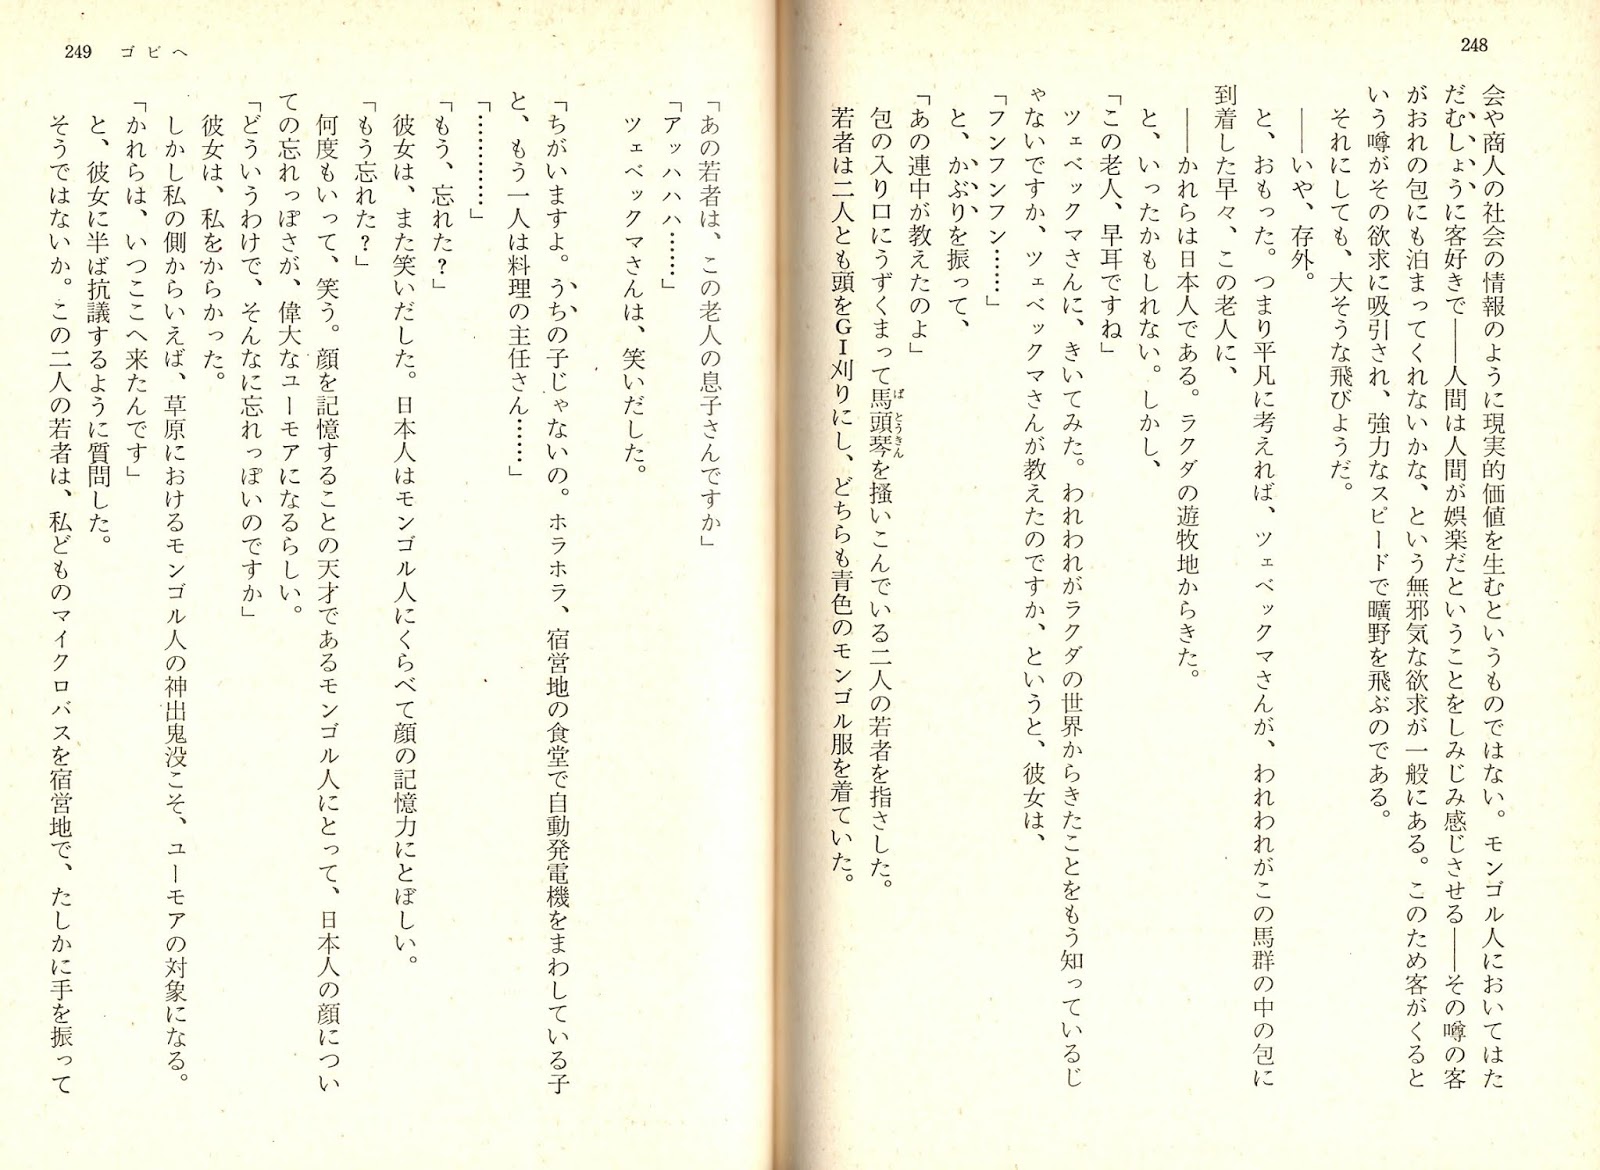 248
会や商人の社会の情報のように現実的価値を生むというものではない。モンゴル人においてはた
だむしょうに客好きで――人間は人間が娯楽だということをしみじみ感じさせる――その噂の客
がおれの包にも泊まってくれないかな、という無邪気な欲求が一般にある。このため客がくると
いう噂がその欲求に吸引され、強力なスピードで曠野を飛ぶのである。
それにしても、大そうな飛びようだ。
――いや、存外。
と、おもった。つまり平凡に考えれば、ツェベックマさんが、われわれがこの馬群の中の包に
到着した早々、この老人に、
――かれらは日本人である。ラクダの遊牧地からきた。
と、いったかもしれない。しかし、
「この老人、早耳ですね」
ツェベックマさんに、きいてみた。われわれがラクダの世界からきたことをもう知っているじ
ゃないですか、ツェベックマさんが教えたのですか、というと、彼女は、
「フンフンフン……」
と、かぶりを振って、
「あの連中が教えたのよ」
包の入り口にうずくまって馬頭琴を掻いこんでいる二人の若者を指さした。
ばとうきん
若者は二人とも頭をGI刈りにし、どちらも青色のモンゴル服を着ていた。
249 ゴビへ
「あの若者は、この老人の息子さんですか」
「アッハハハ……」
ツェベックマさんは、笑いだした。
「ちがいますよ。うちの子じゃないの。ホラホラ、宿営地の食堂で自動発電機をまわしている子
と、もう一人は料理の主任さん……」
「…………」
「もう、忘れた?」
彼女は、また笑いだした。日本人はモンゴル人にくらべて顔の記憶力にとぼしい。
「もう忘れた?」
何度もいって、笑う。顔を記憶することの天才であるモンゴル人にとって、日本人の顔につい
ての忘れっぽさが、偉大なユーモアになるらしい。
「どういうわけで、そんなに忘れっぽいのですか」
彼女は、私をからかった。
しかし私の側からいえば、草原におけるモンゴル人の神出鬼没こそ、ユーモアの対象になる。
「かれらは、いつここへ来たんです」
と、彼女に半ば抗議するように質問した。
そうではないか。この二人の若者は、私どものマイクロバスを宿営地で、たしかに手を振って